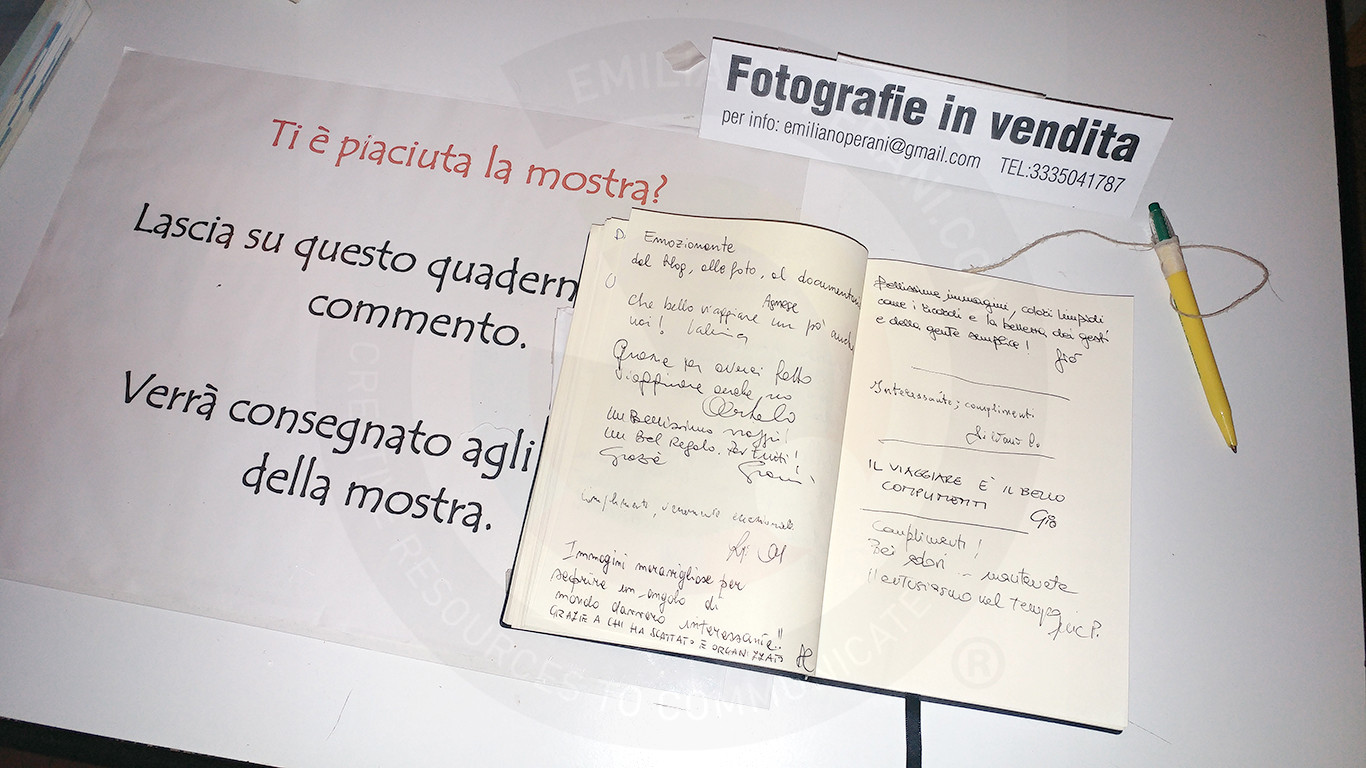 Ti è piaciuta la mostra?
Lascia su questo quadern
commento.
Verrà consegnato agli
della mostra.
Fotografie in vendita
per info: emilianoperani@gmail.com TEL:3335041787
Emozionante
dal blog, alle foto, al documentario
Agnese
Che bello viaggiare un po' anche
noi!
Grazie per averci fatto
viaggiare anche noi
Un Bellissimo viaggio!
Un Bel Regalo. Per tutti!
Grazie
Complimenti, veramente eccezionali
Immagini meravigliose per
scoprire un angolo di
mondo davvero interessante!!
GRAZIE A CHI HA SCATTATO E ORGANIZZATO
Bellissime immagini, colori limpidi
come i ricordi e la bellezza dei gesti
e della gente semplice!
Giò
Interessante; complimenti
IL VIAGGIARE E' IL BELLO
COMPLIMENTI
Giò
Complimenti!
Bei colori - mantenete
l'entusiasmo nel tempo
CREATIVE RESOURCES TO COMMUNICATE
®